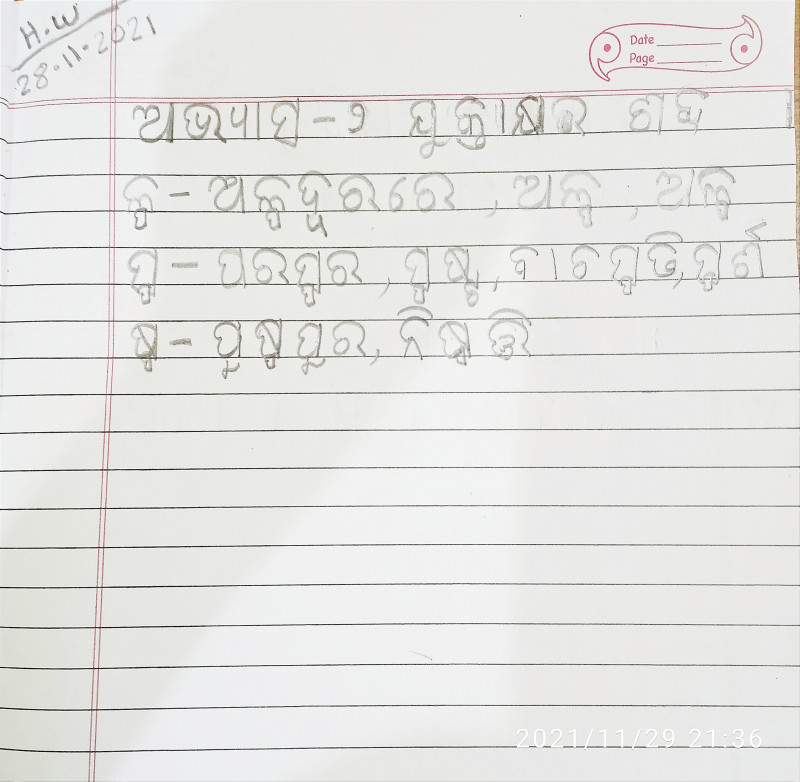 H.W
28.11.2021
Date
Page
ଅଭ୍ୟାସ - ୨ ଯୁକ୍ତାକ୍ଷର ଶବ୍ଦ ।
ଳ୍ପ - ଅଳ୍ପଦୂରରେ, ଅଳ୍ପ, ଅଳ୍ପ
ସ୍ପ - ପରସ୍ପର, ପୁଷ୍ଟ, ବାଚସ୍ପତି, ସ୍ପର୍ଶ
ଷ୍ପ - ପୁଷ୍ପପୁର, ନିଷ୍ପତ୍ତି
2021/11/29 21:36